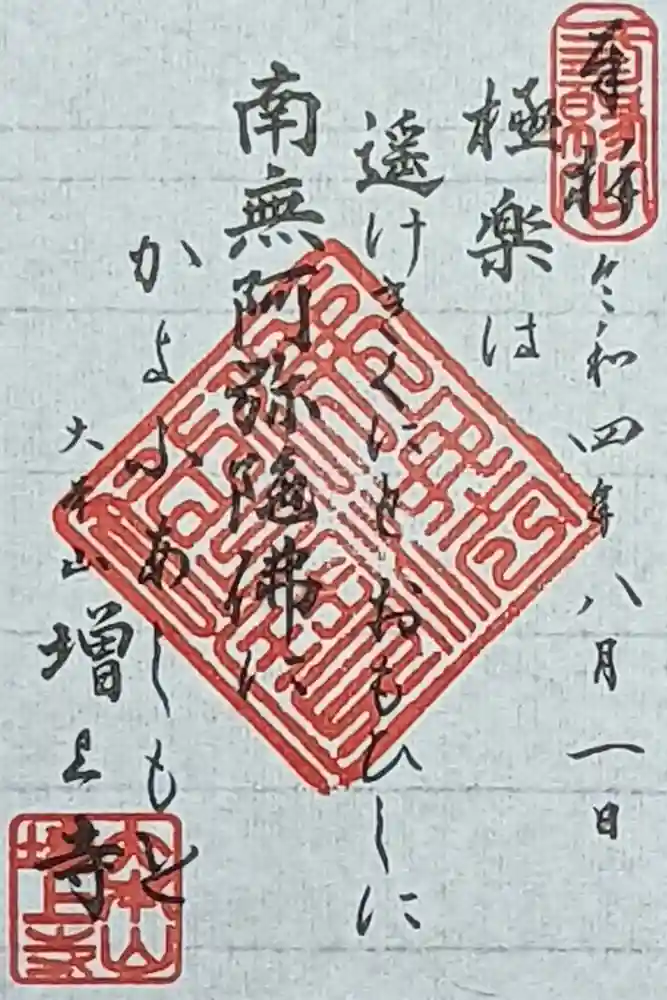 奉拝
令和四年八月一日
極楽は
遥けきくにとおもひしに
南無阿弥陀佛に
かよふあしもと
大本山 増上寺
大本山
増上寺